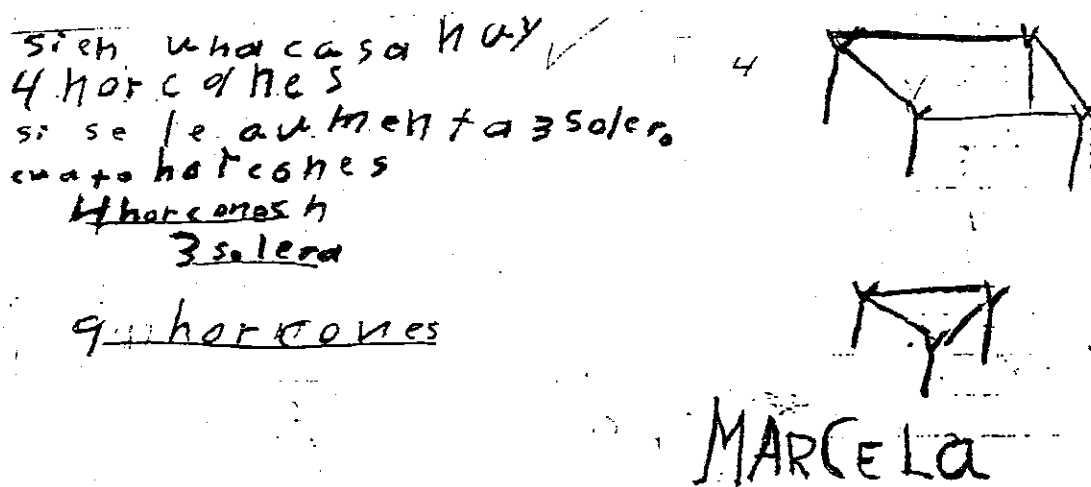 si en una casa hay
4 horcones
si se le aumenta 3 solero
cuato horcones
4 horcones h
3 solera
9 horcones
4
MARCELa